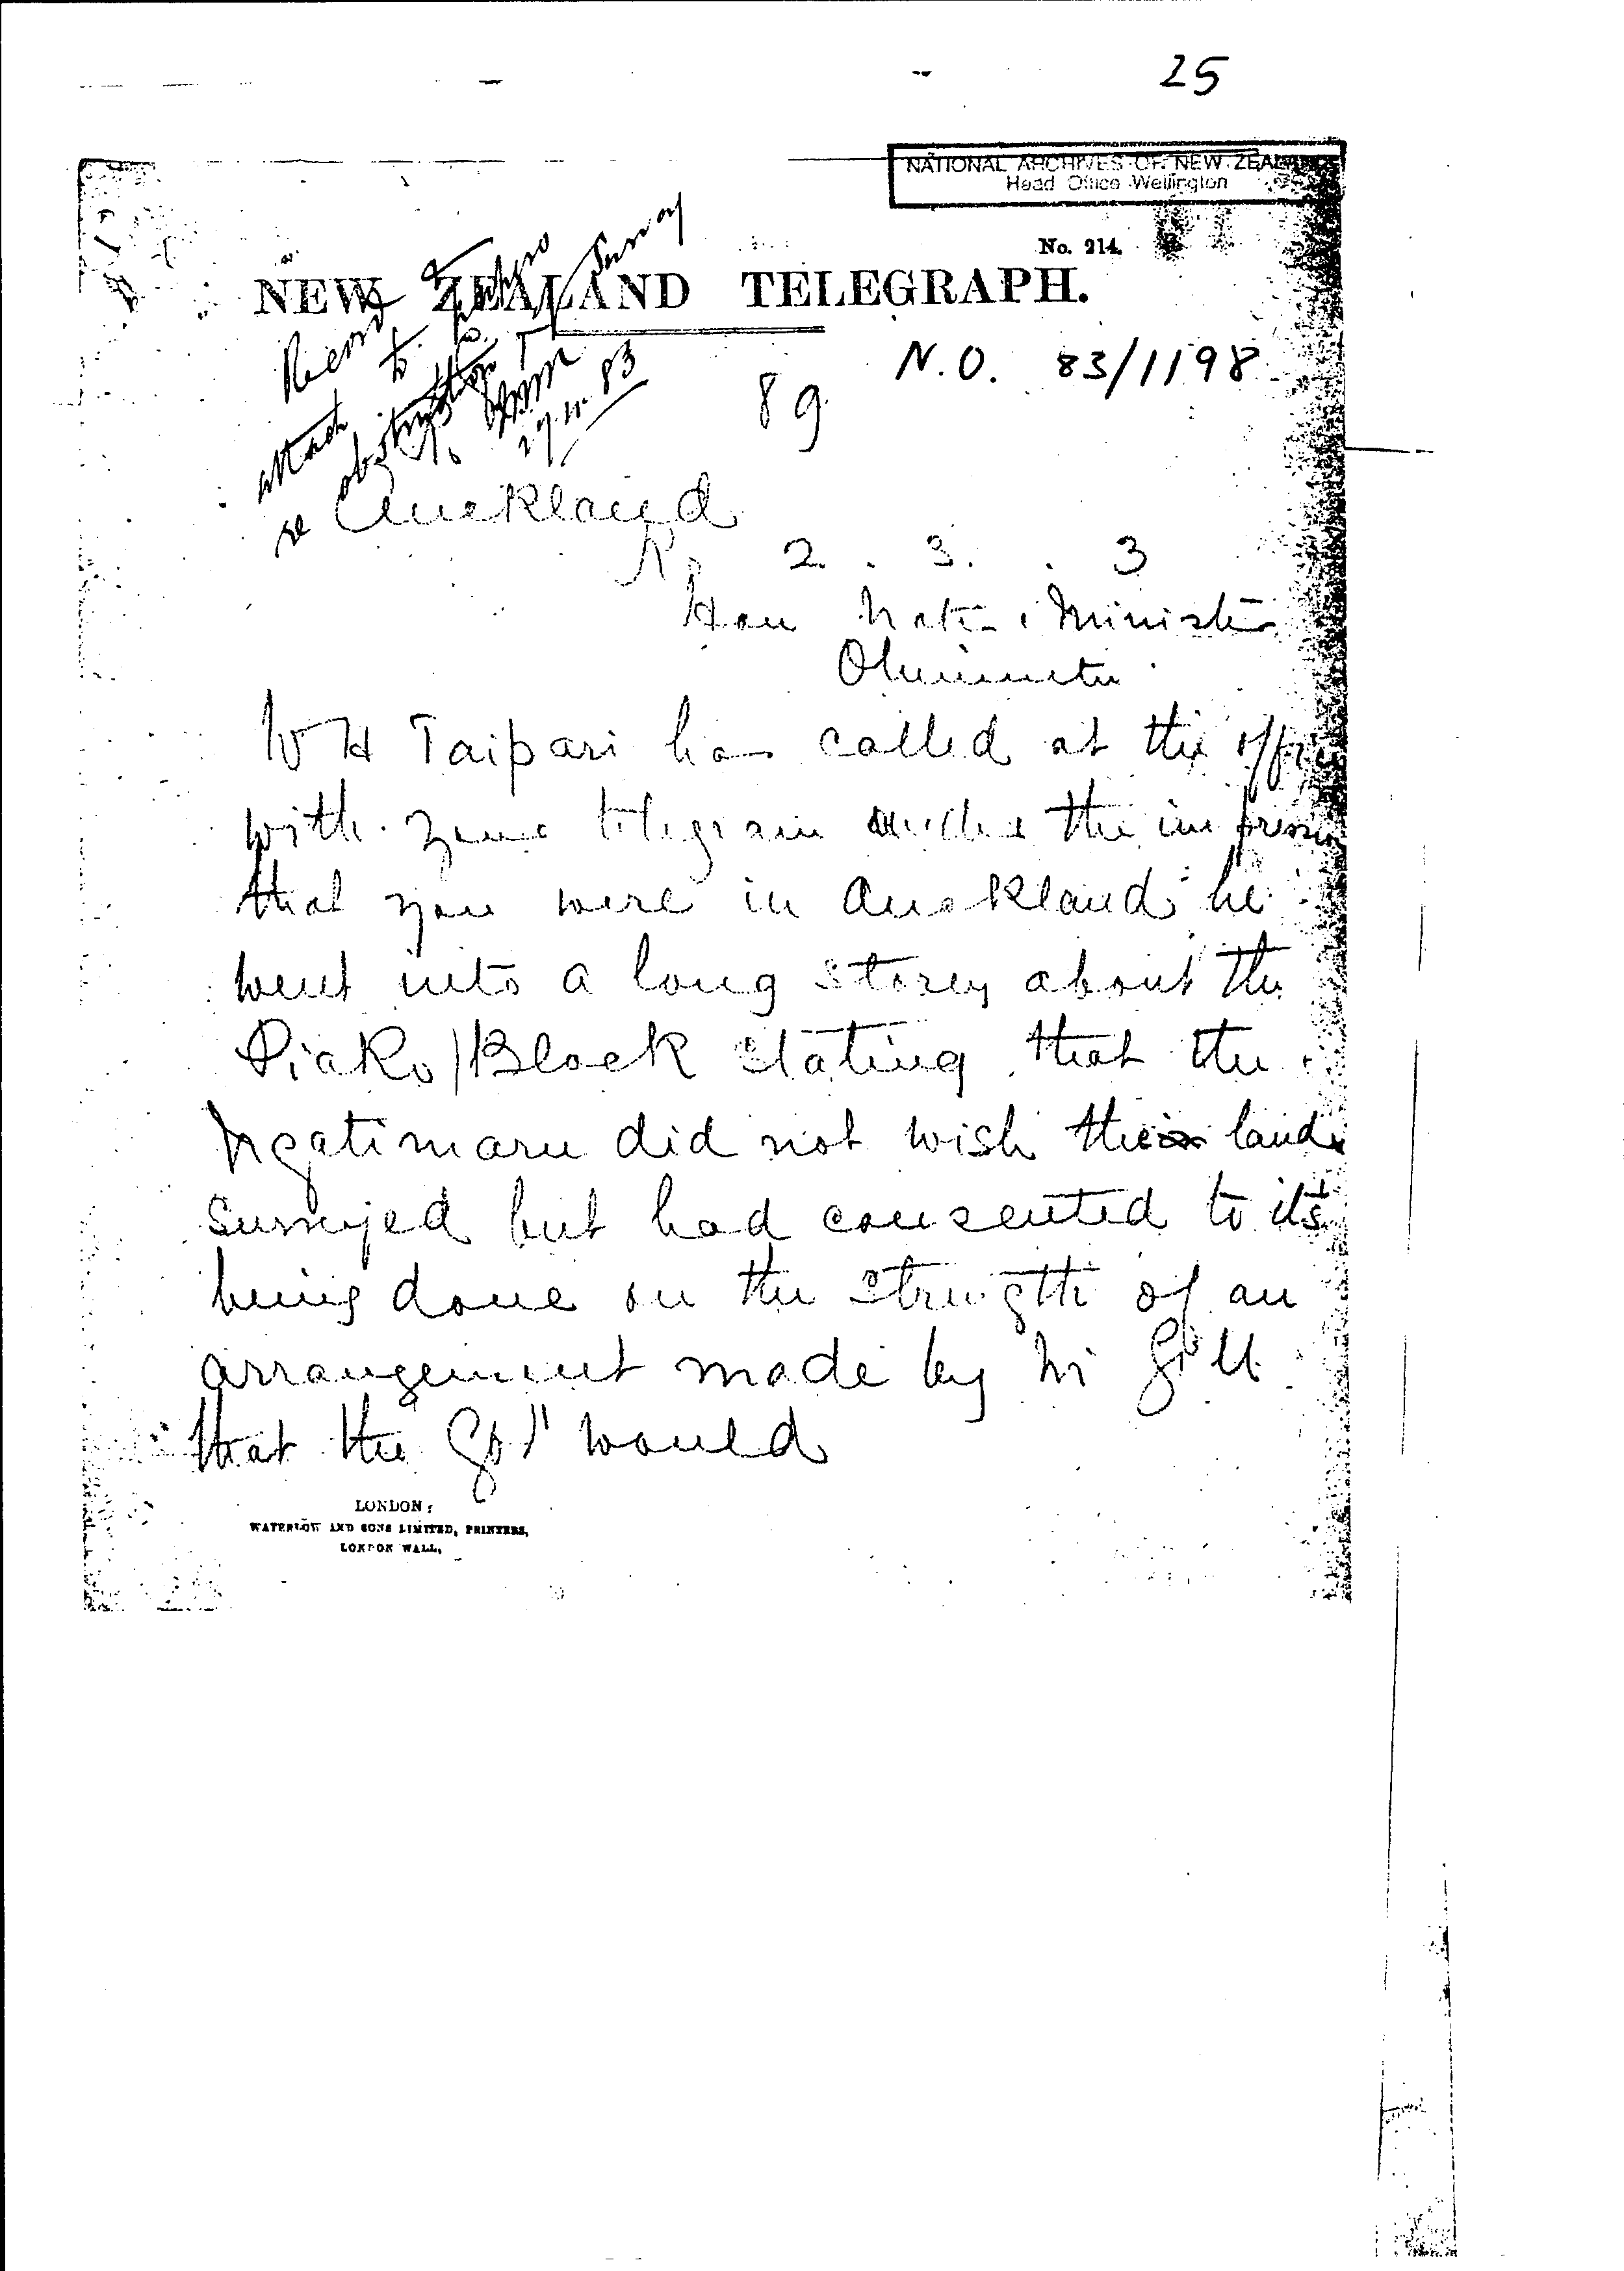 25
NATIONAL ARCHIVES OF NEW ZEALAND
Head Office Wellington
No. 214.
NEW ZEALAND TELEGRAPH.
N.O. 83/1198
89
attach to
re obstruction Survey
83
Auckland
2 . 3 . . 3
Hon Native Minister
W H Taipari has called at the office
with your telegram under the impression
that you were in Auckland he
went into a long storey about the
Piako Block stating that the
Ngatimaru did not wish their land
surveyed but had consented to its
being done on the strength of an
arrangement made by Mr Gill
that the Govt would
LONDON:
WATERLOW AND SONS LIMITED, PRINTERS,
LONDON WALL.